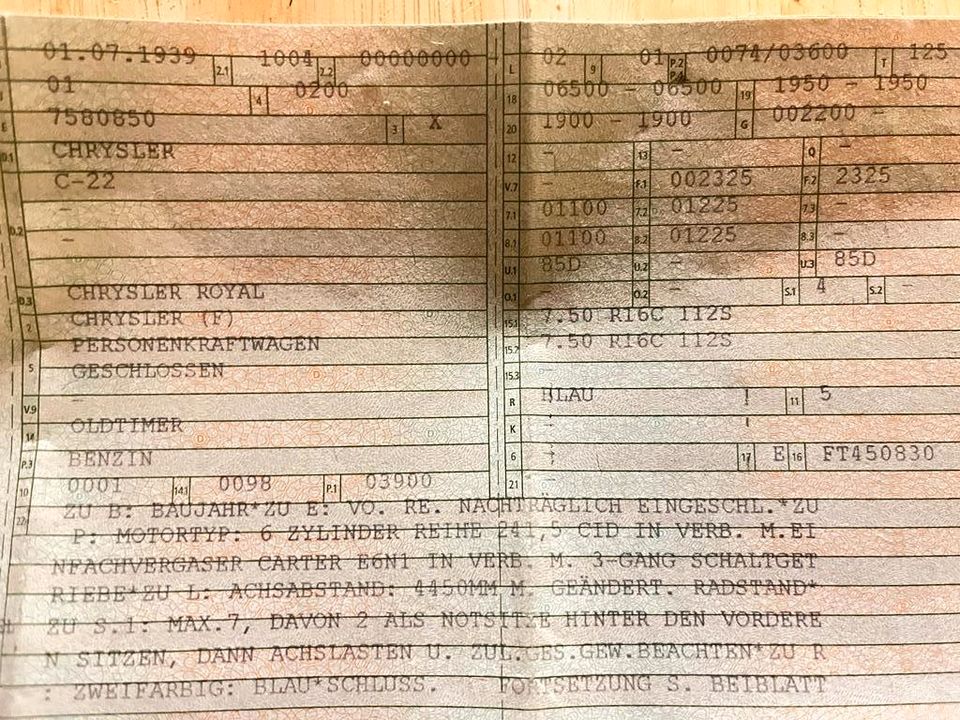 01.07.1939 2.1 1004 2.2 00000000
01 4 0200
7580850 3 X
D.1 CHRYSLER
C-22
-
D.2 -
D.3 CHRYSLER ROYAL
2 CHRYSLER (F)
PERSONENKRAFTWAGEN
5 GESCHLOSSEN
V.9 -
14 OLDTIMER
P.3 BENZIN
10 0001 14.1 0098 P.1 03900
L 02 9 01 P.2 P.4 0074/03600 T 125
18 06500 - 06500 19 1950 - 1950
20 1900 - 1900 G 002200 -
12 - 13 - Q -
V.7 - F.1 002325 F.2 2325
7.1 01100 7.2 01225 7.3 -
8.1 01100 8.2 01225 8.3 -
U.1 85D U.2 - U.3 85D
O.1 - O.2 - S.1 4 S.2 -
15.1 7.50 R16C 112S
15.2 7.50 R16C 112S
15.3 -
R BLAU ! 11 5
K -
6 - 17 E 16 FT450830
21 -
22 ZU B: BAUJAHR*ZU E: VO. RE. NACHTRÄGLICH EINGESCHL.*ZU
P: MOTORTYP: 6 ZYLINDER REIHE 241,5 CID IN VERB. M.EI
NFACHVERGASER CARTER E6N1 IN VERB. M. 3-GANG SCHALTGET
RIEBE*ZU L: ACHSABSTAND: 4450MM M. GEÄNDERT. RADSTAND*
ZU S.1: MAX.7, DAVON 2 ALS NOTSITZE HINTER DEN VORDERE
N SITZEN, DANN ACHSLASTEN U. ZUL.GES.GEW.BEACHTEN*ZU R
: ZWEIFARBIG: BLAU*SCHLUSS. FORTSETZUNG S. BEIBLATT